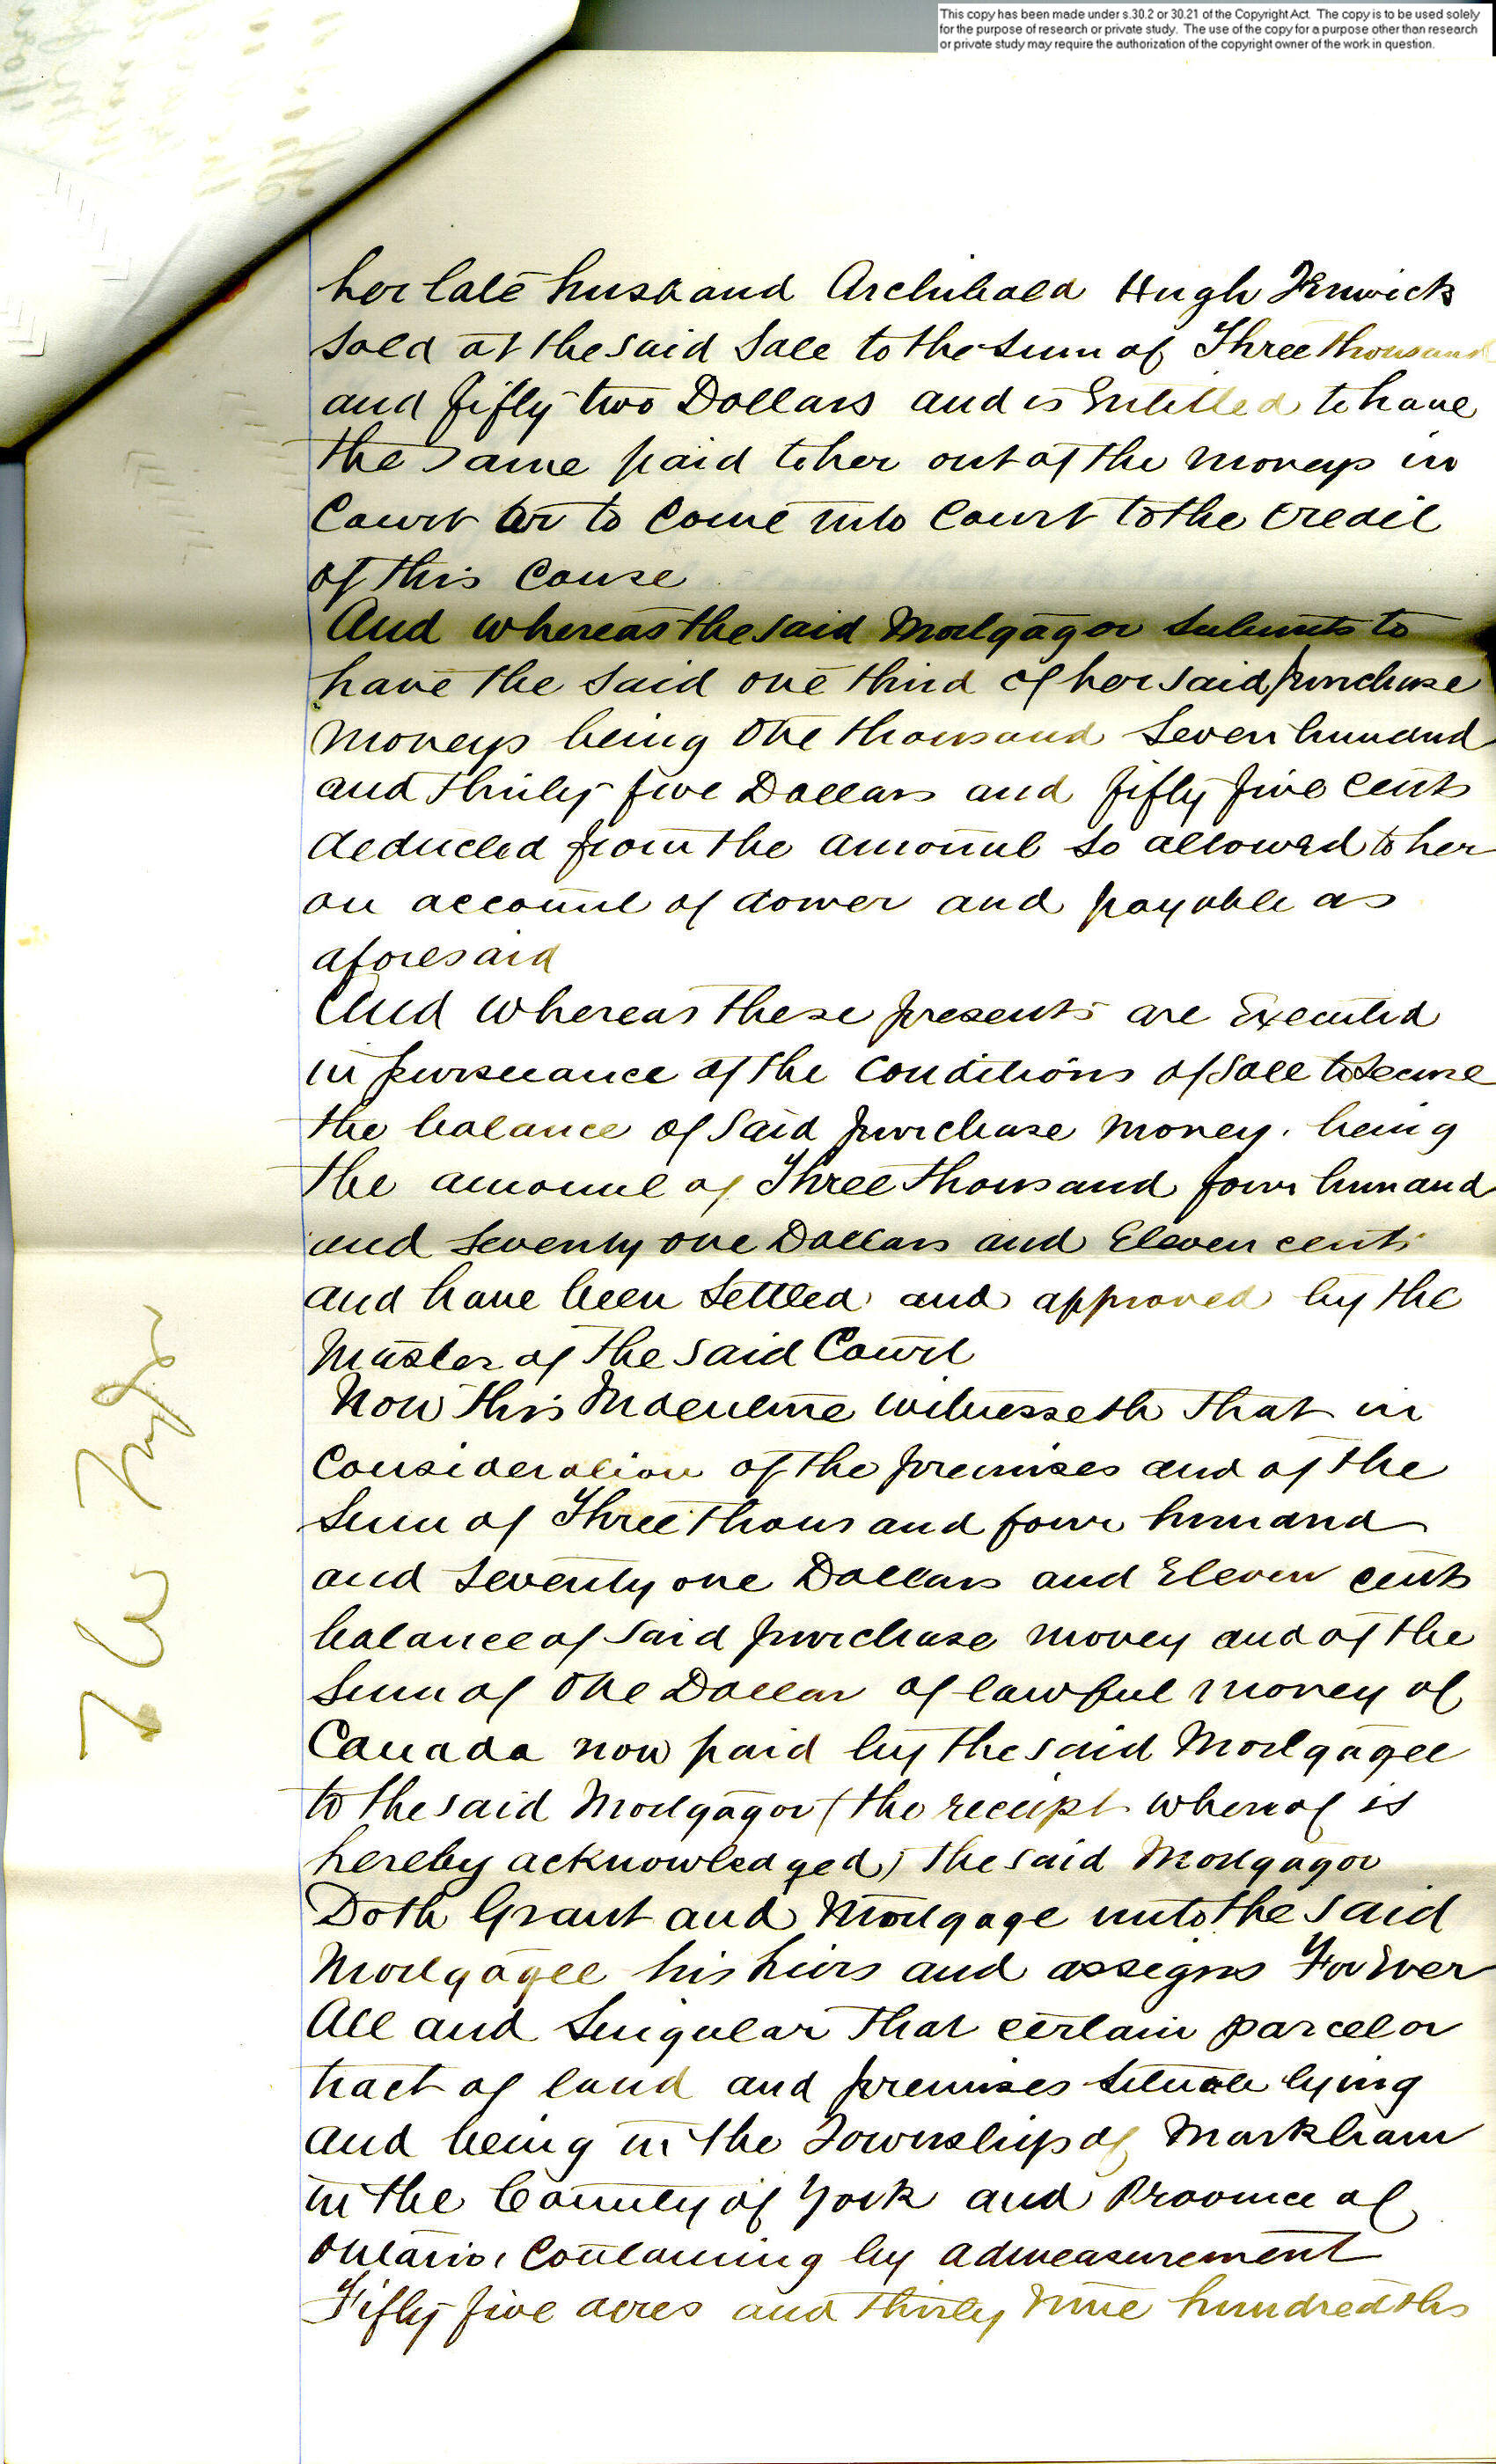 This copy has been made under s.30.2 or 30.21 of the Copyright Act. The copy is to be used solely
for the purpose of research or private study. The use of the copy for a purpose other than research
or private study may require the authorization of the copyright owner of the work in question.
her late husband Archibald Hugh Fenwick
sold at the said Sale to the sum of Three thousand
and fifty two Dollars and is Entitled to have
the same paid to her out of the moneys in
Court or to come into Court to the credit
of this Cause
And whereas the said Mortgagor submits to
have the said one third of her said purchase
moneys being One thousand Seven hundred
and thirty five Dollars and fifty five Cents
deducted from the amount so allowed to her
on account of dower and payable as
aforesaid
And whereas these presents are Executed
in pursuance of the Conditions of Sale to secure
the balance of said purchase money. being
the amount of Three thousand four hundred
and seventy one Dollars and Eleven cents
and have been settled and approved by the
Master of the said Court
Now this Indenture witnesseth that in
Consideration of the premises and of the
sum of Three thousand four hundred
and seventy one Dollars and Eleven cents
balance of said purchase money and of the
sum of One Dollar of lawful money of
Canada now paid by the said Mortgagee
to the said Mortgagor (the receipt whereof is
hereby acknowledged) the said Mortgagor
Doth Grant and Mortgage unto the said
Mortgagee his heirs and assigns Forever
All and Singular that certain parcel or
tract of land and premises situate lying
and being in the Township of Markham
in the County of York and Province of
Ontario, Containing by admeasurement
Fifty five acres and thirty nine hundredths